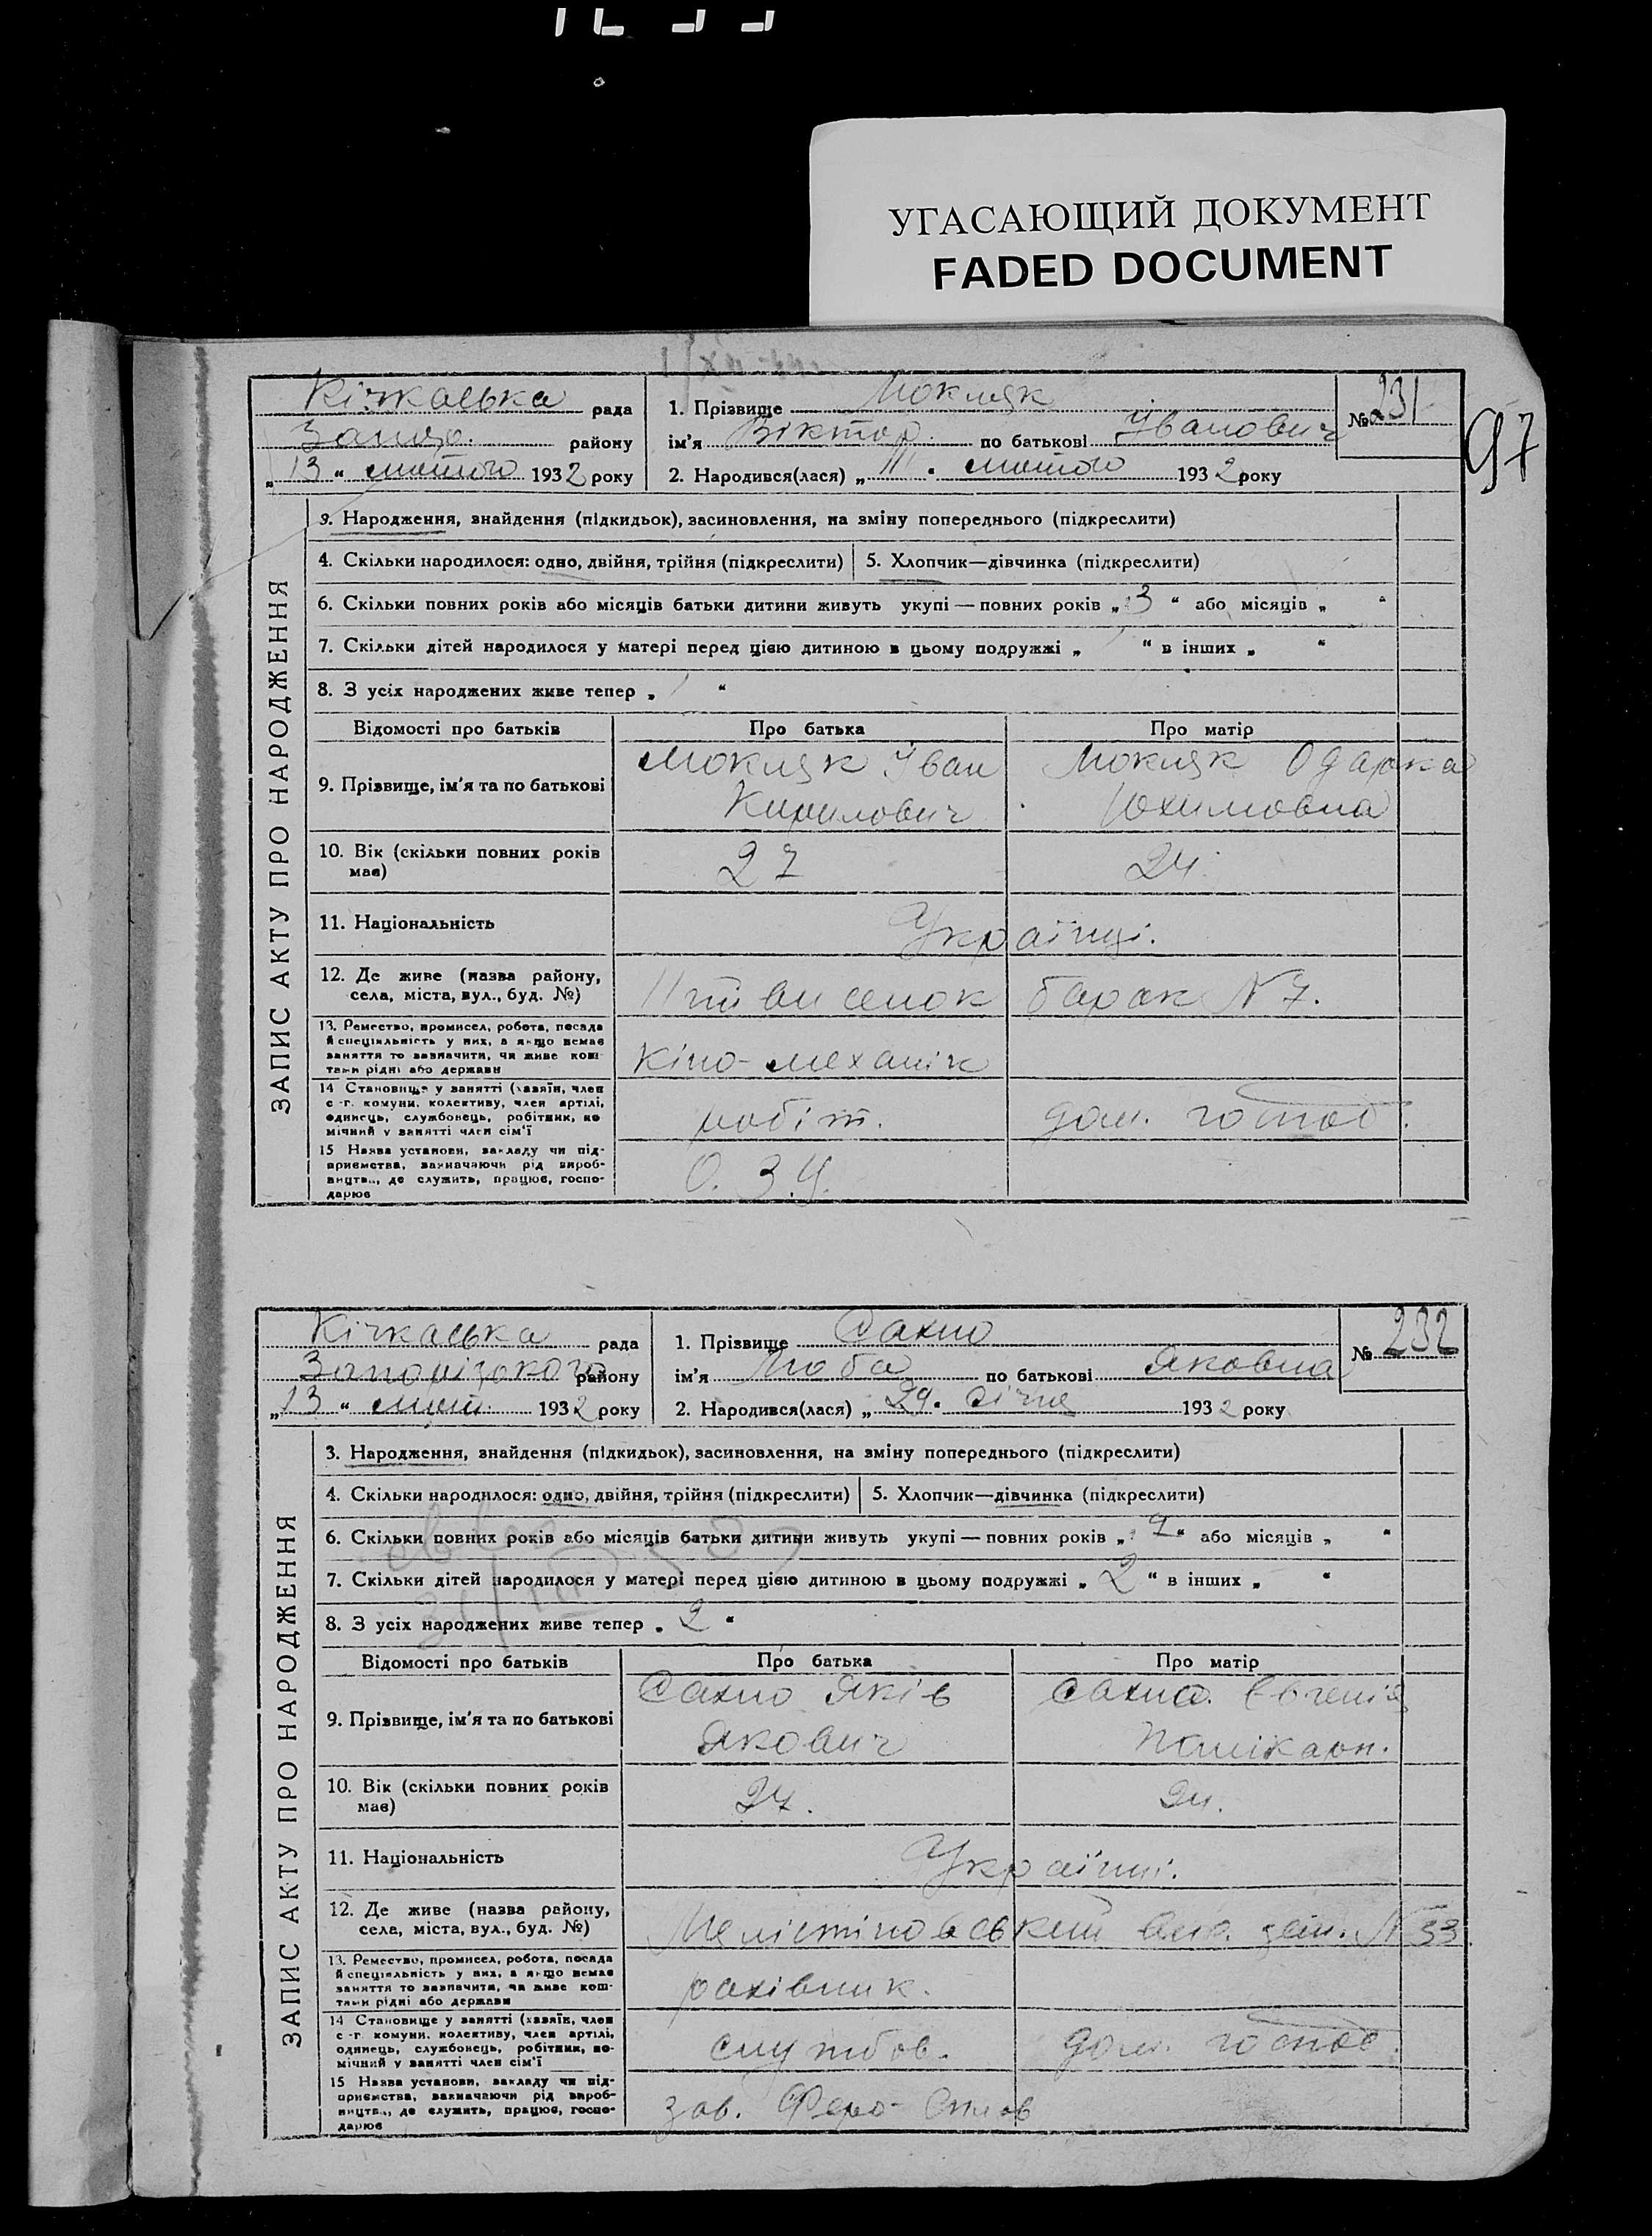 УГАСАЮЩИЙ ДОКУМЕНТ
FADED DOCUMENT
97
Кічкаська рада
Запор. району
„13“ лютого 1932 року
1. Прізвище Мокляк
№ 231
ім'я Віктор по батькові Іванович
2. Народився(лася) „11“ лютого 1932 року
ЗАПИС АКТУ ПРО НАРОДЖЕННЯ
3. Народження, знайдення (підкидьок), засиновлення, на зміну попереднього (підкреслити)
4. Скільки народилося: одно, двійня, трійня (підкреслити)
5. Хлопчик—дівчинка (підкреслити)
6. Скільки повних років або місяців батьки дитини живуть укупі — повних років „3“ або місяців „ “
7. Скільки дітей народилося у матері перед цією дитиною в цьому подружжі „ “ в інших „ “
8. З усіх народжених живе тепер „ “
Відомості про батьків Про батька Про матір
9. Прізвище, ім'я та по батькові
Мокляк Іван
Кирилович
Мокляк Одарка
Юхимовна
10. Вік (скільки повних років має)
27
24.
11. Національність
Українці.
12. Де живе (назва району,
села, міста, вул., буд. №)
11тй виселок барак № 7.
13. Ремество, промисел, робота, посада
й спеціяльність у них, а якщо немає
заняття то зазначити, чи живе кош-
тами рідні або держави
кіно-механік
14 Становище у занятті (хазяїн, член
с.-г. комуни, колективу, член артілі,
одинець, службовець, робітник, по-
мічний у занятті член сім'ї
робіт.
дом. господ.
15 Назва установи, закладу чи під-
приємства, зазначаючи рід вироб-
ництва, де служить, працює, госпо-
дарює
О. З. У.
Кічкаська рада
Запорізького району
„13“ лют. 1932 року
1. Прізвище Сахно
№ 232
ім'я Люба по батькові Яковна
2. Народився(лася) „29“ січня 1932 року
ЗАПИС АКТУ ПРО НАРОДЖЕННЯ
3. Народження, знайдення (підкидьок), засиновлення, на зміну попереднього (підкреслити)
4. Скільки народилося: одно, двійня, трійня (підкреслити)
5. Хлопчик—дівчинка (підкреслити)
6. Скільки повних років або місяців батьки дитини живуть укупі — повних років „7“ або місяців „ “
7. Скільки дітей народилося у матері перед цією дитиною в цьому подружжі „2“ в інших „ “
8. З усіх народжених живе тепер „2“
Відомості про батьків Про батька Про матір
9. Прізвище, ім'я та по батькові
Сахно Яків
Якович
Сахно. Євгенія
Полікарп.
10. Вік (скільки повних років має)
27.
24.
11. Національність
Українці.
12. Де живе (назва району,
села, міста, вул., буд. №)
№ 33
13. Ремество, промисел, робота, посада
й спеціяльність у них, а якщо немає
заняття то зазначити, чи живе кош-
тами рідні або держави
рахівник.
14 Становище у занятті (хазяїн, член
с.-г. комуни, колективу, член артілі,
одинець, службовець, робітник, по-
мічний у занятті член сім'ї
службов.
дом. господ.
15 Назва установи, закладу чи під-
приємства, зазначаючи рід вироб-
ництва, де служить, працює, госпо-
дарює
зав. Феро-Сплав